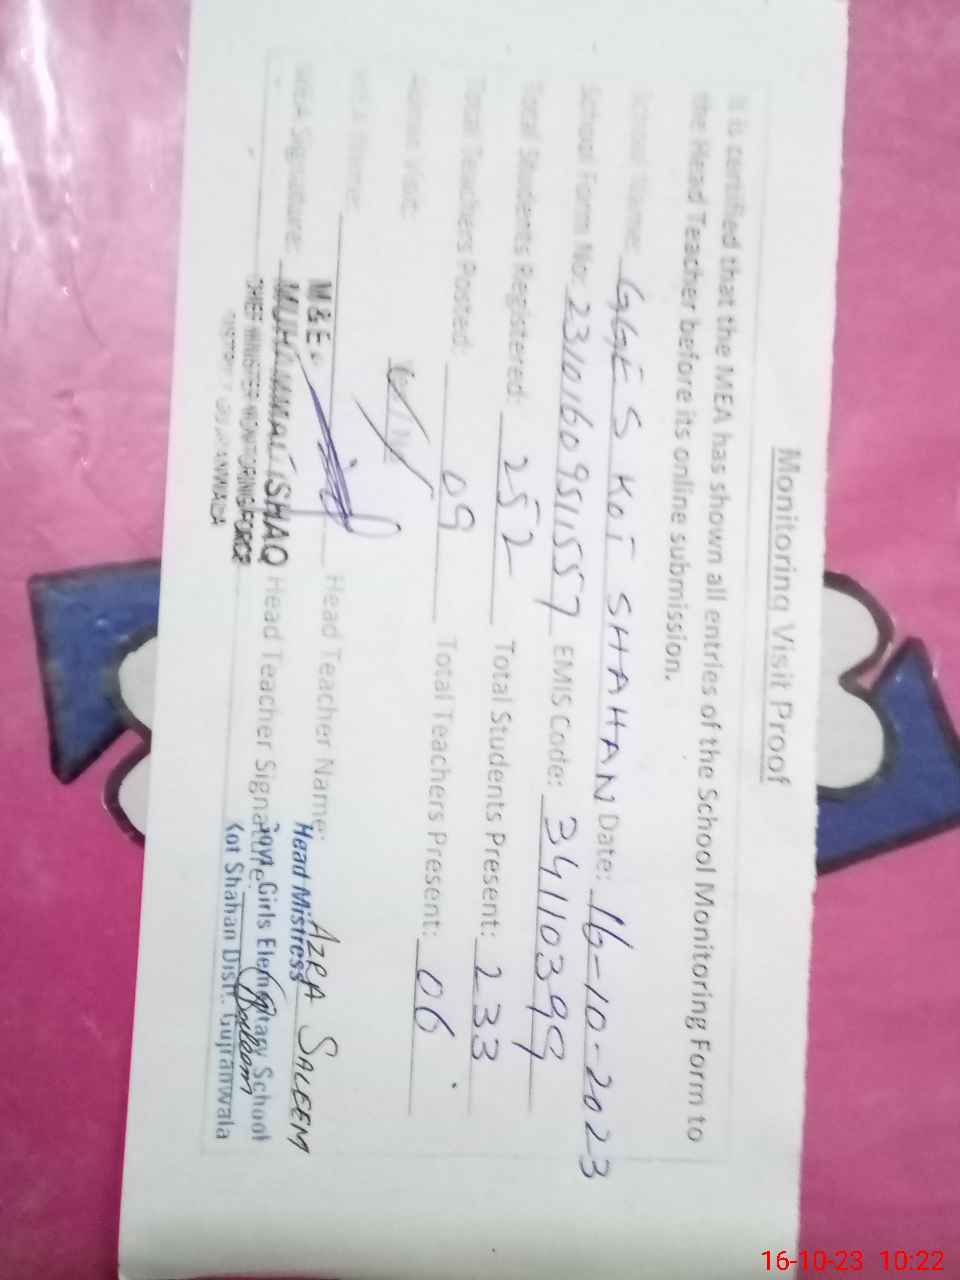 Monitoring Visit Proof
It is certified that the MEA has shown all entries of the School Monitoring Form to
the Head Teacher before its online submission.
School Name: GGES KOT SHAHAN Date: 16-10-2023
School Form No: 2310160951557 EMIS Code: 34110399
Total Students Registered: 252 Total Students Present: 233
Total Teachers Posted: 09 Total Teachers Present: 06
Admin Visit: Y/N
MEA Name: Head Teacher Name: AZRA SALEEM
MEA Signature: Head Teacher Signature: Saleem
M&E
MUHAMMAD ISHAQ
CHIEF MINISTER MONITORING FORCE
DISTRICT GUJRANWALA
Head Mistress
Govt. Girls Elementary School
Kot Shahan Distt. Gujranwala
16-10-23 10:22